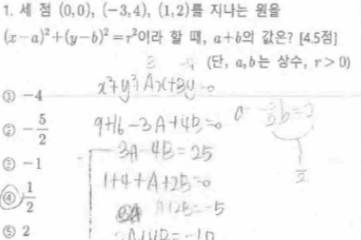 1. 세 점 (0,0), (-3,4), (1,2)를 지나는 원을
(x-a)²+(y-b)²=r²이라 할 때, a+b의 값은? [4.5점]
(단, a,b는 상수, r>0)
① -4
② -5/2
③ -1
④ 1/2
⑤ 2
x²+y²+Ax+By=0
9+16-3A+4B=0
3A-4B=25
1+4+A+2B=0
A+2B=-5
2A+4B=-10